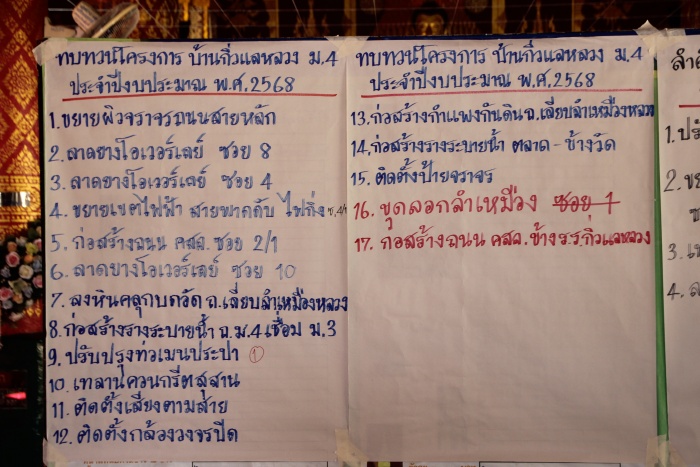 ทบทวนโครงการ บ้านกิ่วแลหลวง ม.4
ประจำปีงบประมาณ พ.ศ.2568
1.ขยายผิวจราจรถนนสายหลัก
2.ลาดยางโอเวอร์เลย์ ซอย 8
3.ลาดยางโอเวอร์เลย์ ซอย 4
4.ขยายเขตไฟฟ้า สายพาดดับ ไฟกิ่ง ซ.4/1
5.ก่อสร้างถนน คสล.ซอย 2/1
6.ลาดยางโอเวอร์เลย์ ซอย 10
7.ลงหินคลุกบดอัด ถ.เลียบลำเหมืองหลวง
8.ก่อสร้างรางระบายน้ำ ถ.ม.4 เชื่อม ม.3
9.ปรับปรุงท่อเมนประปา ①
10.เทลานคอนกรีตสุสาน
11.ติดตั้งเสียงตามสาย
12.ติดตั้งกล้องวงจรปิด
ทบทวนโครงการ บ้านกิ่วแลหลวง ม.4
ประจำปีงบประมาณ พ.ศ.2568
13.ก่อสร้างกำแพงกันดิน ถ.เลียบลำเหมืองหลวง
14.ก่อสร้างรางระบายน้ำ ตลาด - ข้างวัด
15.ติดตั้งป้ายจราจร
16.ขุดลอกลำเหมือง ซอย 1
17.ก่อสร้างถนน คสล.ข้าง ร.ร.กิ่วแลหลวง
1.
2.
3.
4.